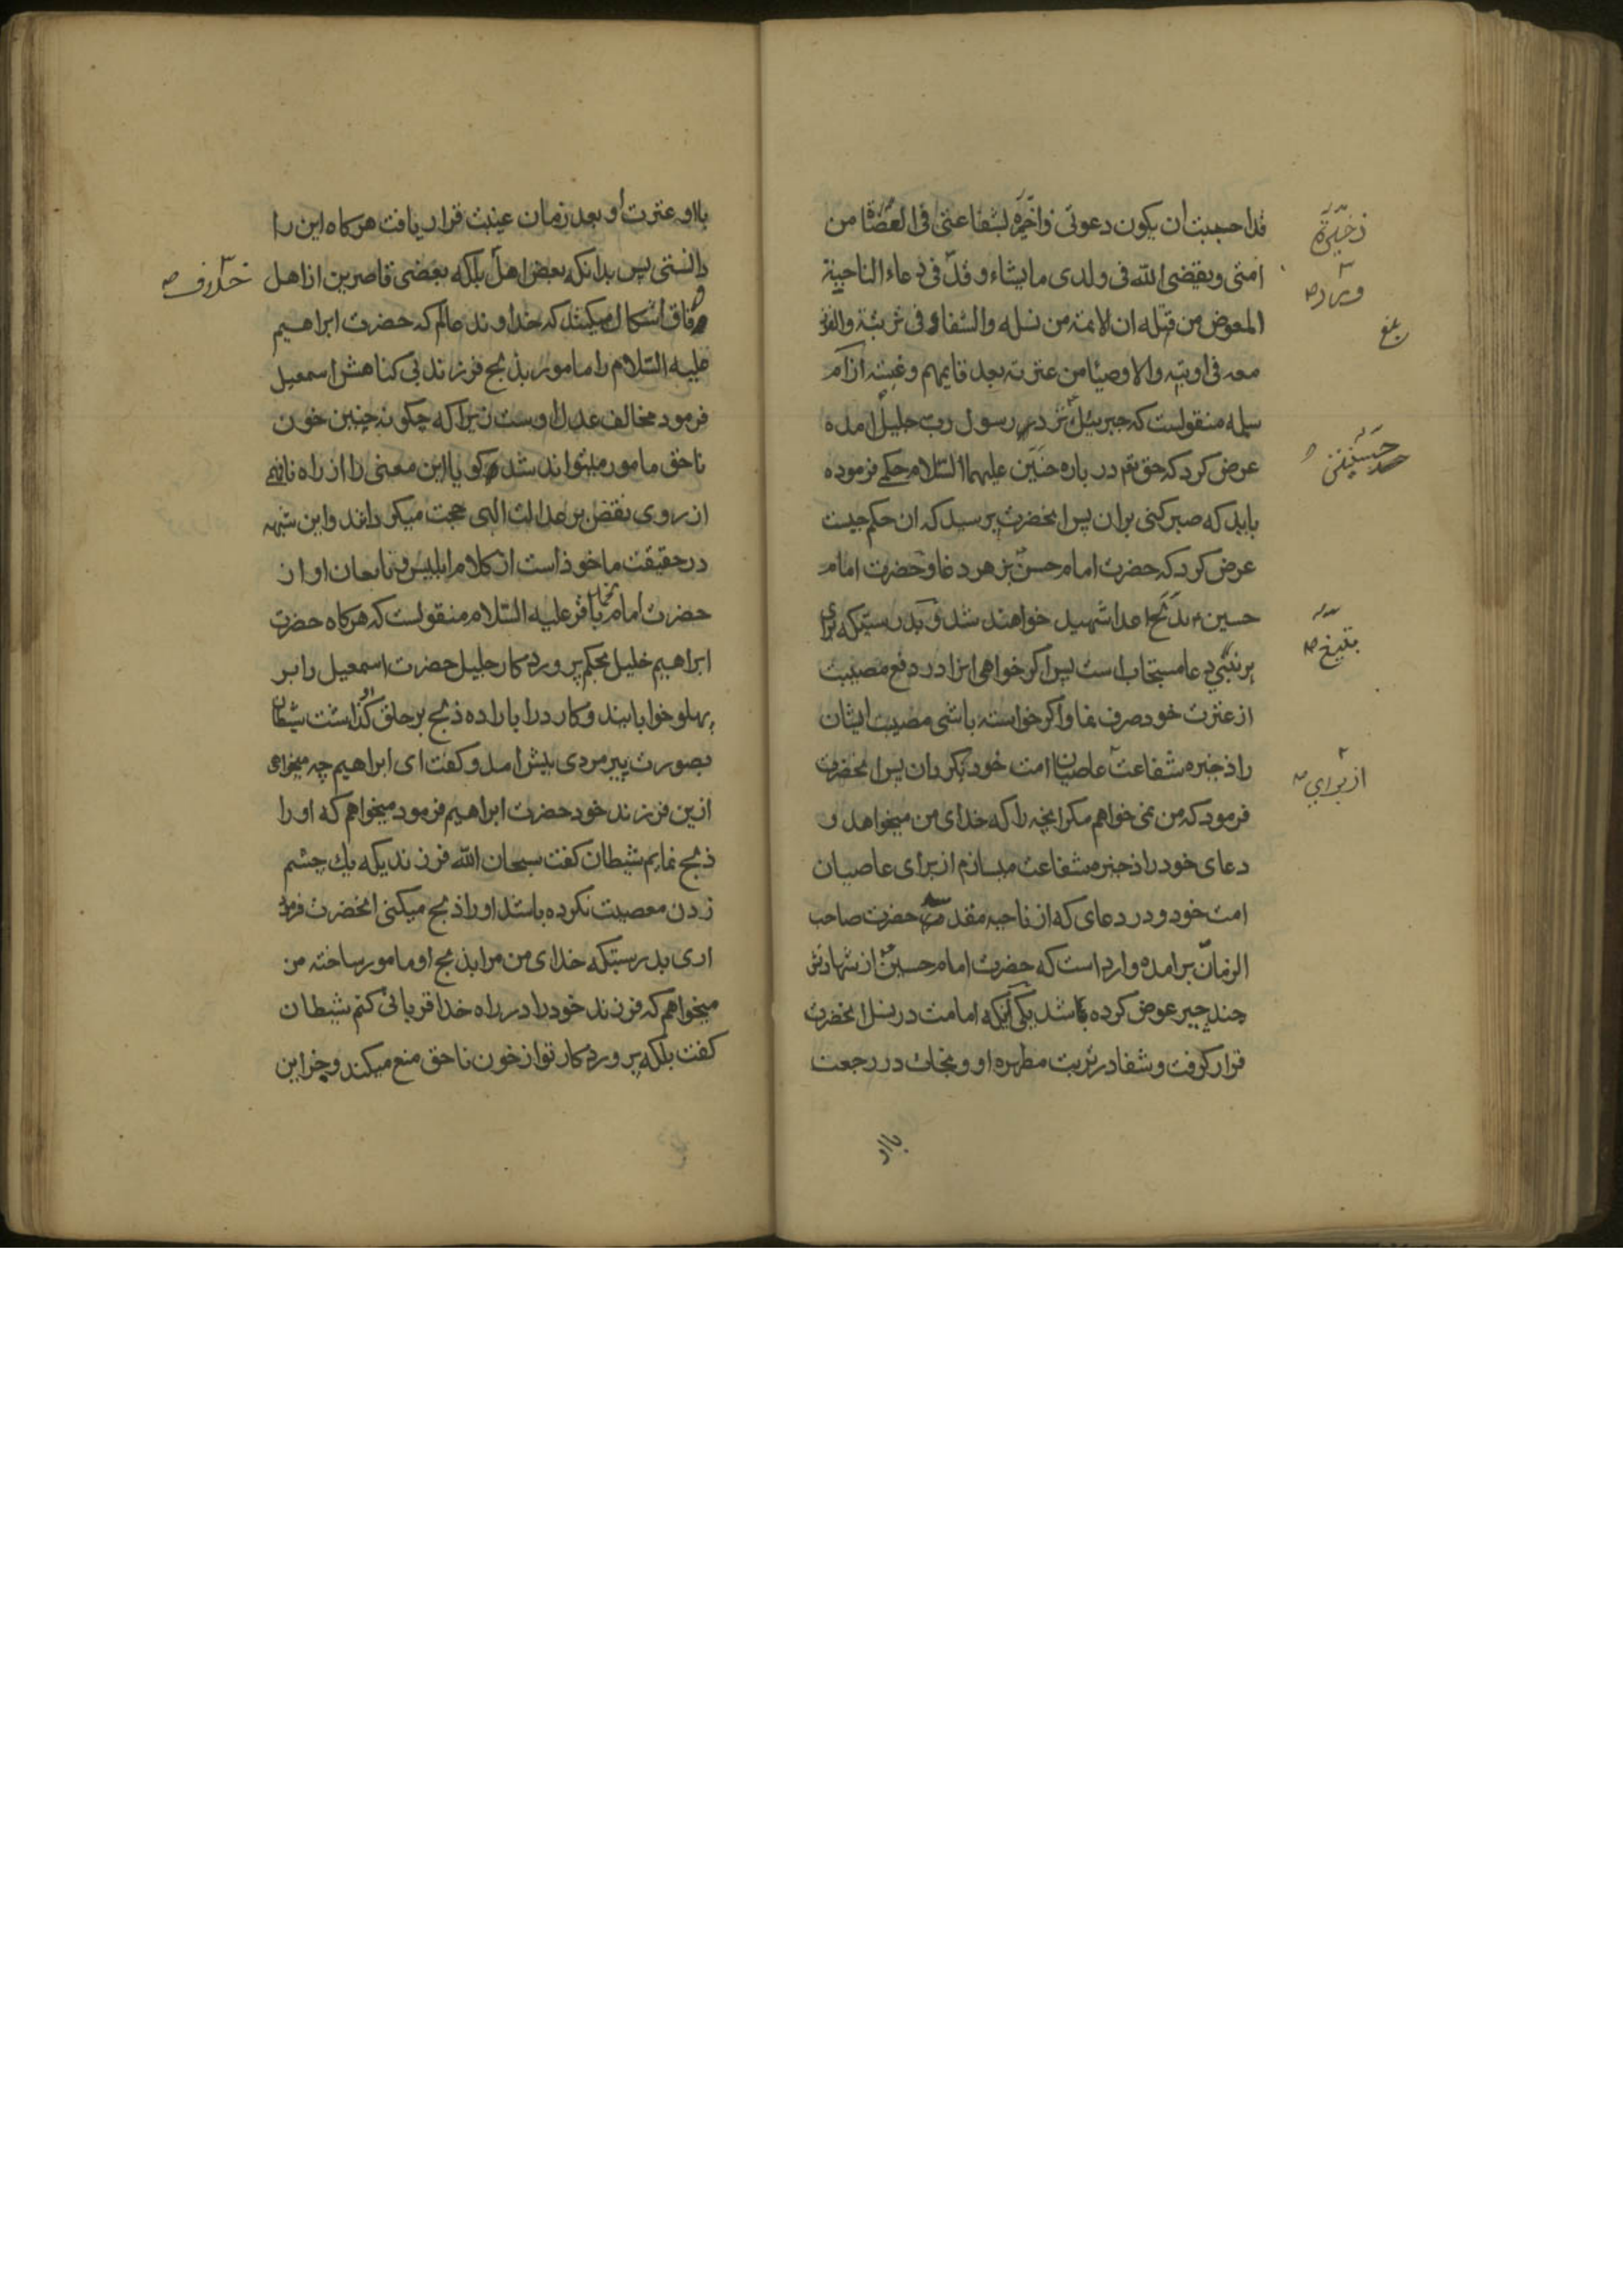 قد احببت ان یکون دعوتی ذاخیره لشفاعتی فی العصاة من
امتی و یقضی الله فی ولدی مایشاء و قد فی دعاء الناحیة
المعوض من قتله ان الائمة من نسله والشفاء فی تربته والفوز
معه فی اوبته والاوصیا من عترته بعد قایمهم وغیبته از ام
سلمه منقولست که جبرییل نزد رسول رب جلیل آمده
عرض کرد که حق تعم درباره حسنین علیهما السلام حکمی فرموده
باید که صبر کنی بران پس انحضرت پرسید که ان حکم چیست
عرض کرد که حضرت امام حسن بزهر دغا و حضرت امام
حسین بذبح اعدا شهید خواهند شد و بدرستیکه برای
هر نبیی دعا مستجاب است پس اکر خواهی انرا در دفع مصیبت
از عترت خود صرف نما و اکر خواسته باشی مصیبت ایشان
را ذخیره شفاعت عاصیان امت خود بکردان پس انحضرت
فرمود که من نمی خواهم مکر انچه را که خدای من میخواهد و
دعای خود را ذخیره شفاعت میسازم از برای عاصیان
امت خود و در دعای که از ناحیه مقدسه حضرت صاحب
الزمان برامده وارد است که حضرت امام حسین از شهادتش
چند چیز عوض کرده باشد یکی آنکه امامت در نسل انحضرت
قرار کرفت و شفا در تربت مطهره او و نجات در رجعت
بااو
ذخیرة
ورد
بلغ
حسنین
بتیغ
از برای
بااو و عترت او بعد زمان غیبت قرار یافت هرکاه این را
دانستی پس بدانکه بعض اهل بلکه بعضی قاصرین از اهل
خلاف
وفاق اشکال میکنند که خداوند عالم که حضرت ابراهیم
علیه السلام را مامور بذبح فرزند بی کناهش اسمعیل
فرمود مخالف عدل اوست زیرا که چکونه چنین خون
ناحق مامور میتواند شد و کویا این معنی را از راه نافهمی
از روی نقض بر عدالت الهی حجت میکردانند و این شبهه
درحقیقت ماخوذ است از کلام ابلیس و تابعان او از
حضرت امام محمد باقر علیه السلام منقولست که هرکاه حضرت
ابراهیم خلیل بحکم پروردکار جلیل حضرت اسمعیل را بر
پهلو خوابانید و کارد را باراده ذبح بر حلق او کذاشت شیطان
بصورت پیرمردی پیش امد و کفت ای ابراهیم چه میخواهی
ازین فرزند خود حضرت ابراهیم فرمود میخواهم که او را
ذبح نمایم شیطان کفت سبحان الله فرزندیکه یك چشم
زدن معصیت نکرده باشد او را ذبح میکنی انحضرت فرمود
اری بدرستیکه خدای من مرا بذبح او مامور ساخته من
میخواهم که فرزند خود را در راه خدا قربانی کنم شیطان
کفت بلکه پروردکار تو از خون ناحق منع میکند و جز این